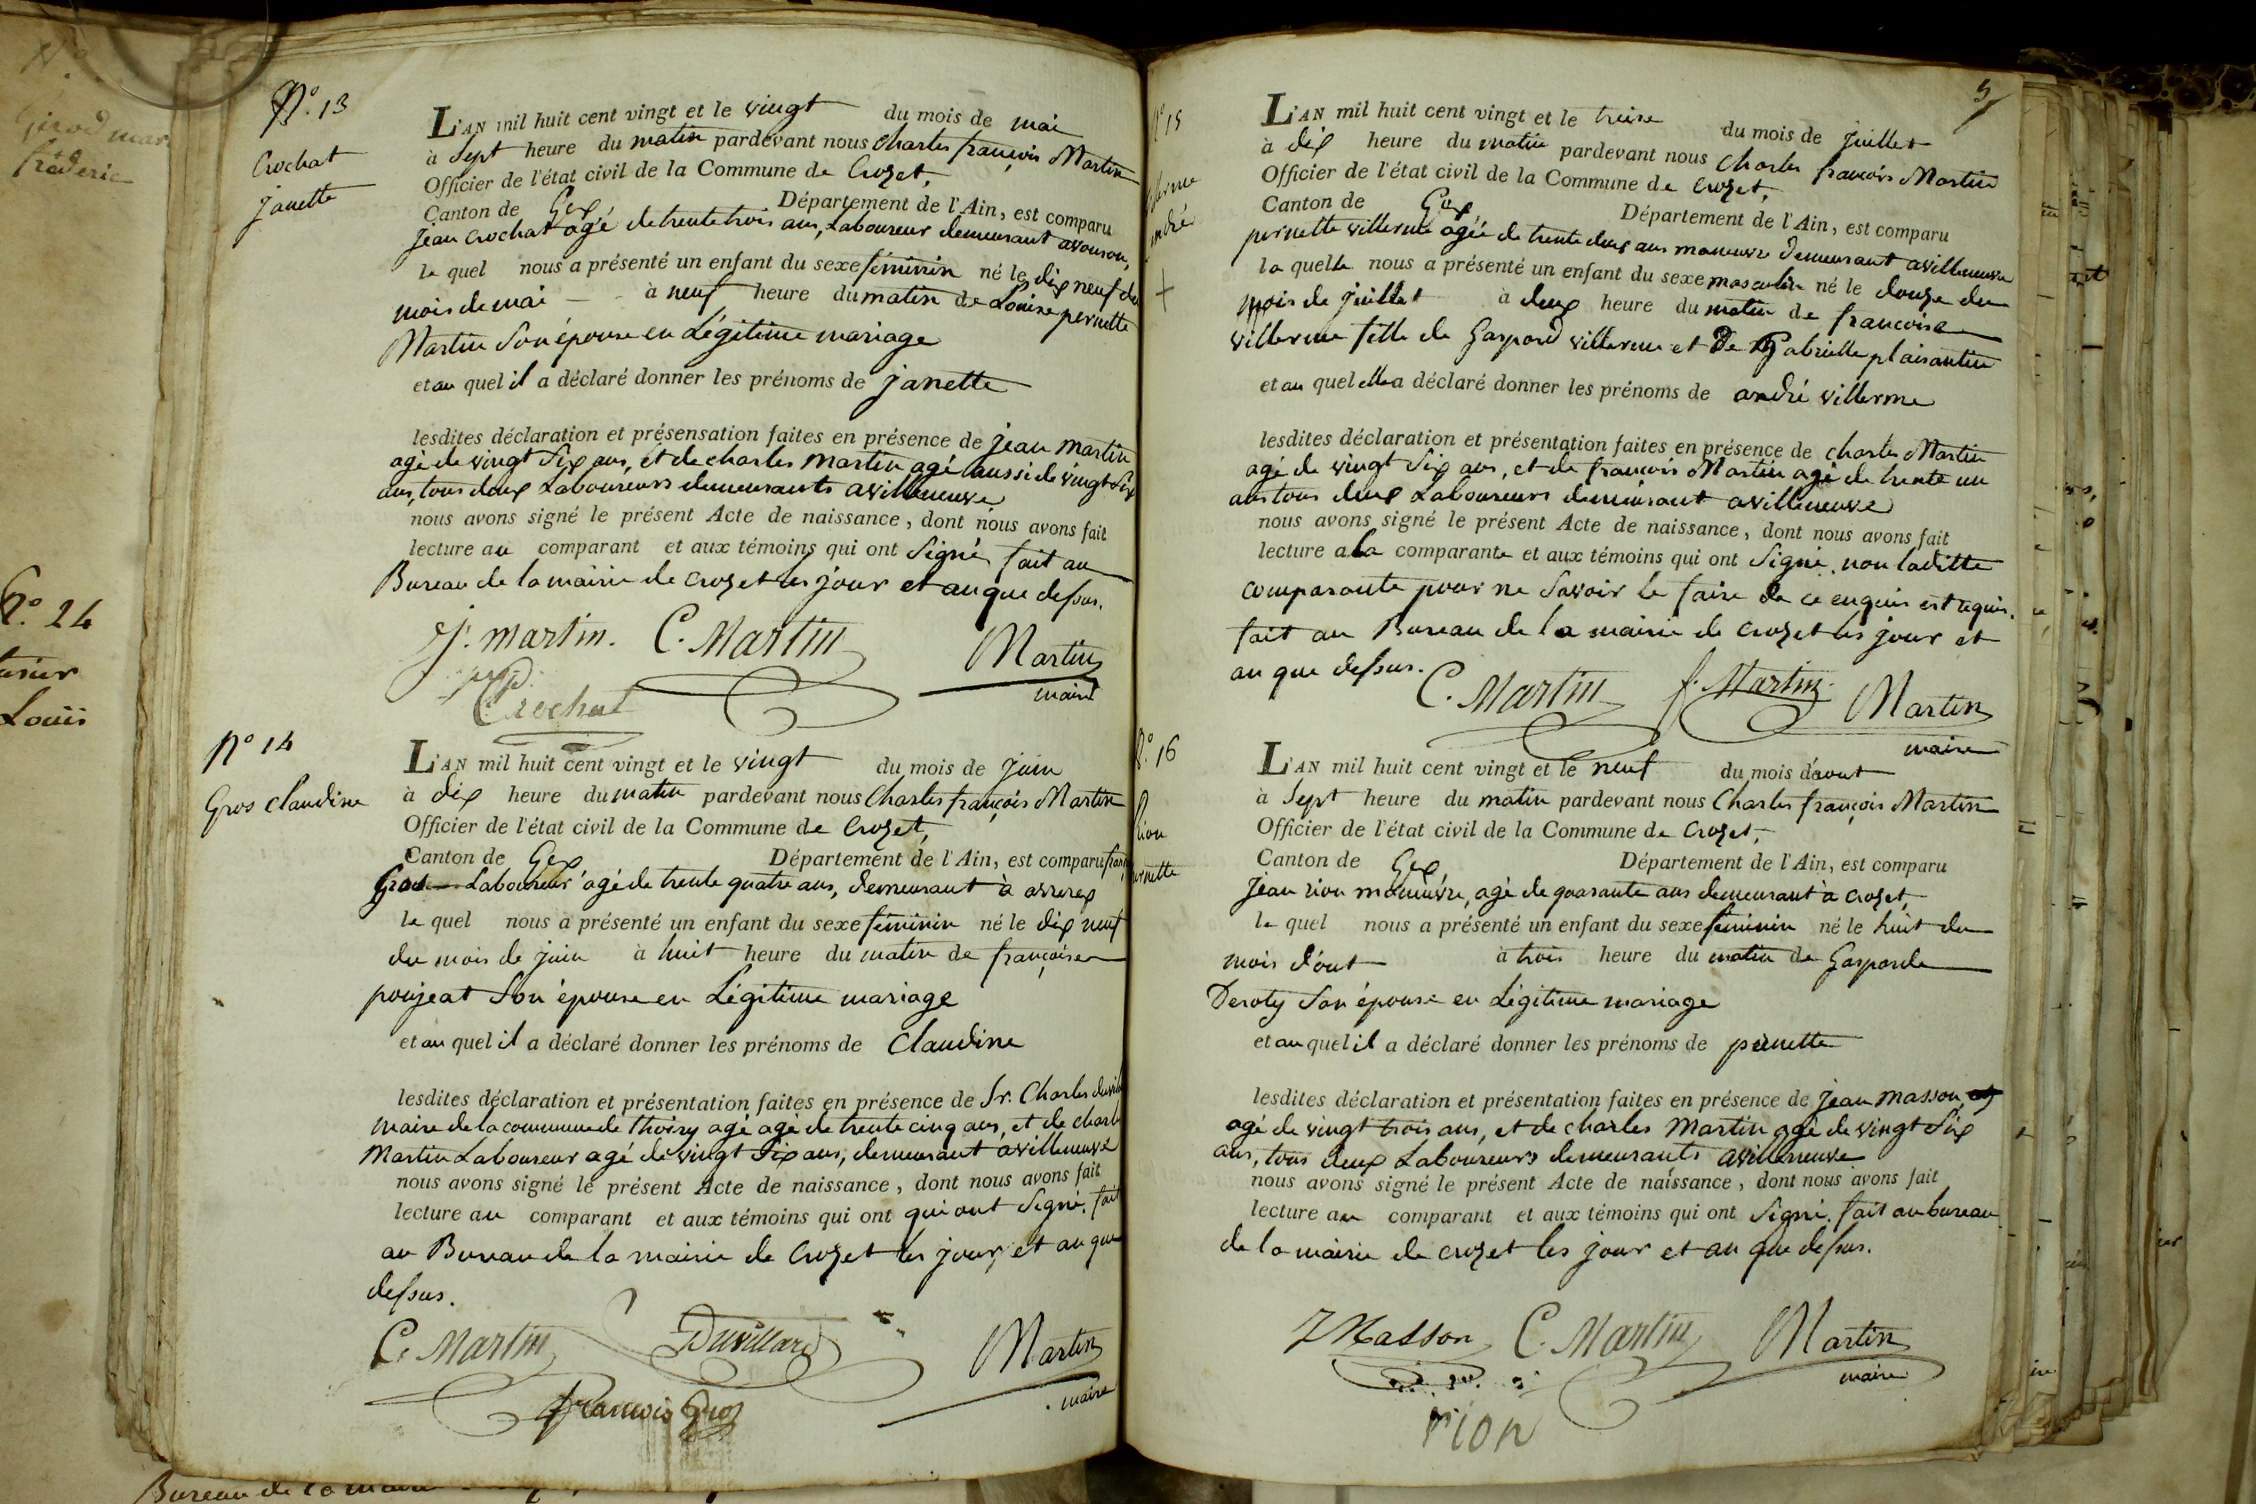 Girod mar
fréderic
N.° 24
Louis
N.° 13
Crochat
janette
L'AN mil huit cent vingt et le vingt du mois de mai
à Sept heure du matin pardevant nous Charles françois Martin
Officier de l'état civil de la Commune de Crozet,
Canton de Gex Département de l'Ain, est comparu
Jean Crochat agé de trente trois ans, Laboureur demeurant avouson,
le quel nous a présenté un enfant du sexe féminin né le dix neuf du
mois de mai à neuf heure du matin de Louise pernette
Martin Son épouse en Légitime mariage
et au quel il a déclaré donner les prénoms de janette
lesdites déclaration et présensation faites en présence de jean martin
agé de vingt Six ans, et de charles Martin agé aussi de vingt Six
ans, tous deux Laboureurs demeurants avilleneuve
nous avons signé le présent Acte de naissance, dont nous avons fait
lecture au comparant et aux témoins qui ont Signé, fait au
Bureau de la mairie de Crozet les jour et an que dessus.
J. martin. C. Martin Martin
maire
Crochat
N° 14
Gros Claudine
L'AN mil huit cent vingt et le vingt du mois de juin
à dix heure du matin pardevant nous Charles françois Martin
Officier de l'état civil de la Commune de Crozet,
Canton de Gex Département de l'Ain, est comparu fran
Gros Laboureur agé de trente quatre ans, demeurant à avrerex
le quel nous a présenté un enfant du sexe féminin né le dix neuf
du mois de juin à huit heure du matin de françoise
poujeat Son épouse en Légitime mariage
et au quel il a déclaré donner les prénoms de Claudine
lesdites déclaration et présentation faites en présence de Sr. Charles duvill
maire de la commune de Thoiry agé agé de trente cinq ans, et de charl
Martin Laboureur agé de vingt Six ans, demeurant avilleneuve
nous avons signé le présent Acte de naissance, dont nous avons fait
lecture au comparant et aux témoins qui ont qui ont Signé. fait
au Bureau de la mairie de Crozet les jour, et an que
dessus.
C. Martin Duvillard Martin
maire
francois Gros
5
N° 15
villerme
andré
L'AN mil huit cent vingt et le treise du mois de juillet
à dix heure du matin pardevant nous Charles françois Martin
Officier de l'état civil de la Commune de Crozet,
Canton de Gex Département de l'Ain, est comparu
pernette villerme agée de trente deux ans maneuvre demeurant avilleneuve
la quelle nous a présenté un enfant du sexe masculin né le douze du
mois de juillet à deux heure du matin de francoise
villerme fille de Gaspard villerme et de Gabrielle plaisantin
et au quel elle a déclaré donner les prénoms de andré villerme
lesdites déclaration et présentation faites en présence de charles Martin
agé de vingt Six ans, et de francois Martin agé de trente un
ans tous deux Laboureurs demeurant avilleneuve
nous avons signé le présent Acte de naissance, dont nous avons fait
lecture a la comparante et aux témoins qui ont Signé. non laditte
comparante pour ne Savoir le faire de ce enquis est requis.
fait au Bureau de la mairie de Crozet les jour et
an que dessus.
C. Martin f. Martin Martin
maire
N.° 16
Rion
pernette
L'AN mil huit cent vingt et le neuf du mois d'aout
à Sept heure du matin pardevant nous Charles françois Martin
Officier de l'état civil de la Commune de Crozet,
Canton de Gex Département de l'Ain, est comparu
Jean rion maneuvre, agé de quarante ans demeurant à Crozet,
le quel nous a présenté un enfant du sexe féminin né le huit du
mois d'out à trois heure du matin de Gasparde
Deroty Son épouse en Légitime mariage
et au quel il a déclaré donner les prénoms de pernette
lesdites déclaration et présentation faites en présence de jean masson
agé de vingt trois ans, et de charles Martin agé de vingt Six
ans, tous deux Laboureurs demeurants avilleneuve
nous avons signé le présent Acte de naissance, dont nous avons fait
lecture au comparant et aux témoins qui ont Signé. fait au bureau
de la mairie de crozet les jour et an que dessus.
J Masson C. Martin Martin
maire
rion
Bureau de la mairie